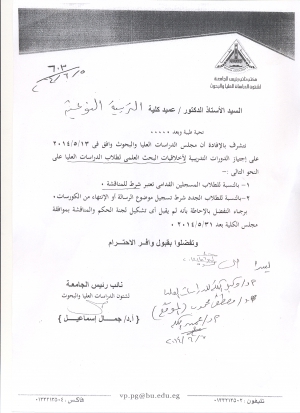 مكتب نائب رئيس الجامعة
لشئون الدراسات العليا والبحوث
٢٠١٤/٦/٥
السيد الأستاذ الدكتور / عميد كلية التربية النوعية
تحية طيبة وبعد ،،،،،
نتشرف بالإفادة أن مجلس الدراسات العليا والبحوث وافق في ٢٠١٤/٥/١٣
على إجتياز الدورات التدريبية لأخلاقيات البحث العلمى لطلاب الدراسات العليا على
النحو التالى :-
١- بالنسبة للطلاب المسجلين القدامى تعتبر شرط للمناقشة .
٢- بالنسبة للطلاب الجدد شرط تسجيل موضوع الرسالة أو الإنتهاء من الكورسات .
برجاء التفضل بالإحاطة بأنه لم يقبل أى تشكيل لجنة الحكم والمناقشة بموافقة
مجلس الكلية بعد ٢٠١٤/٥/٣١ .
وتفضلوا بقبول وافر الاحترام
نائب رئيس الجامعة
لشئون الدراسات العليا والبحوث
{ أ.د/ جمال إسماعيل }
تليفون : ٠١٣٣٢١٣٥٠٢
vp.pg@bu.edu.eg
فاكس : ٠١٣٣٢١٣٥٠٤